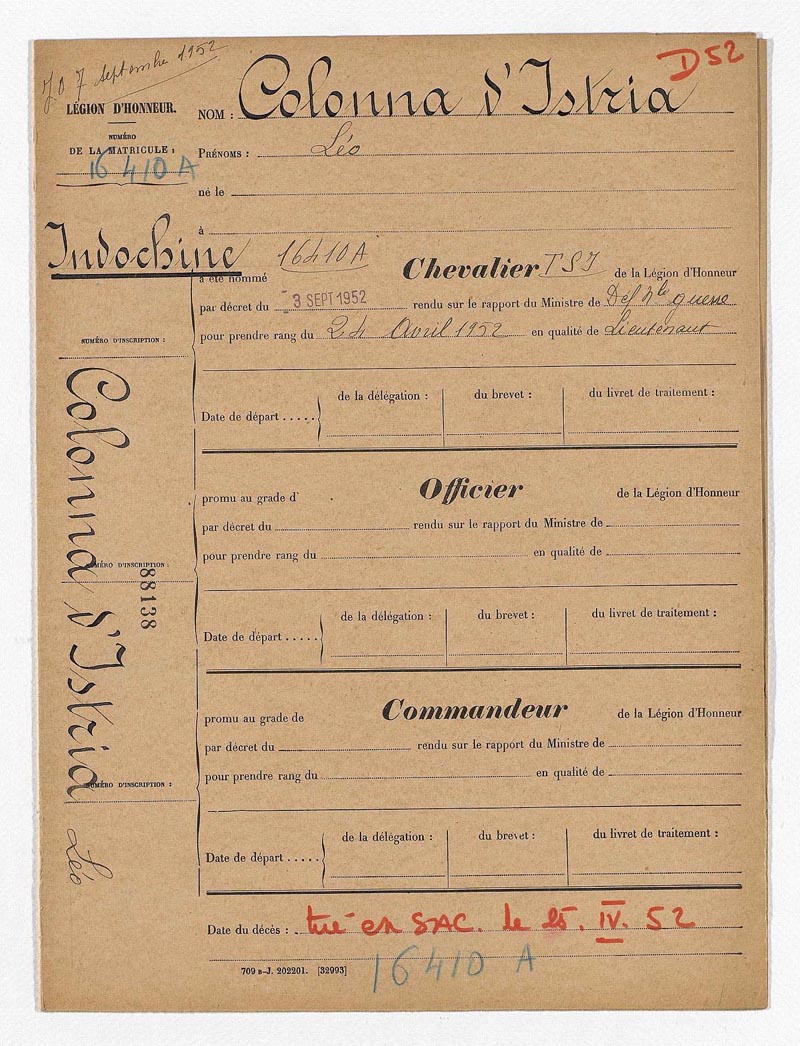 J.O 7 Septembre 1952
D52
LÉGION D'HONNEUR.
NUMÉRO
DE LA MATRICULE :
16410 A
NOM : Colonna d'Istria
PRÉNOMS : Léo
né le
à
Indochine
16410 A
a été nommé Chevalier TSI de la Légion d'Honneur
par décret du - 3 SEPT 1952 rendu sur le rapport du Ministre de Déf Nle guerre
pour prendre rang du 24 Avril 1952 en qualité de Lieutenant
NUMÉRO D'INSCRIPTION :
Date de départ ..... de la délégation : du brevet : du livret de traitement :
promu au grade d' Officier de la Légion d'Honneur
par décret du rendu sur le rapport du Ministre de
pour prendre rang du en qualité de
NUMÉRO D'INSCRIPTION :
88138
Date de départ ..... de la délégation : du brevet : du livret de traitement :
promu au grade de Commandeur de la Légion d'Honneur
par décret du rendu sur le rapport du Ministre de
pour prendre rang du en qualité de
NUMÉRO D'INSCRIPTION :
Date de départ ..... de la délégation : du brevet : du livret de traitement :
Colonna d'Istria Léo
Date du décès : tué en SAC. le 25. IV. 52
709 B-J. 202201. [32993]
16410 A